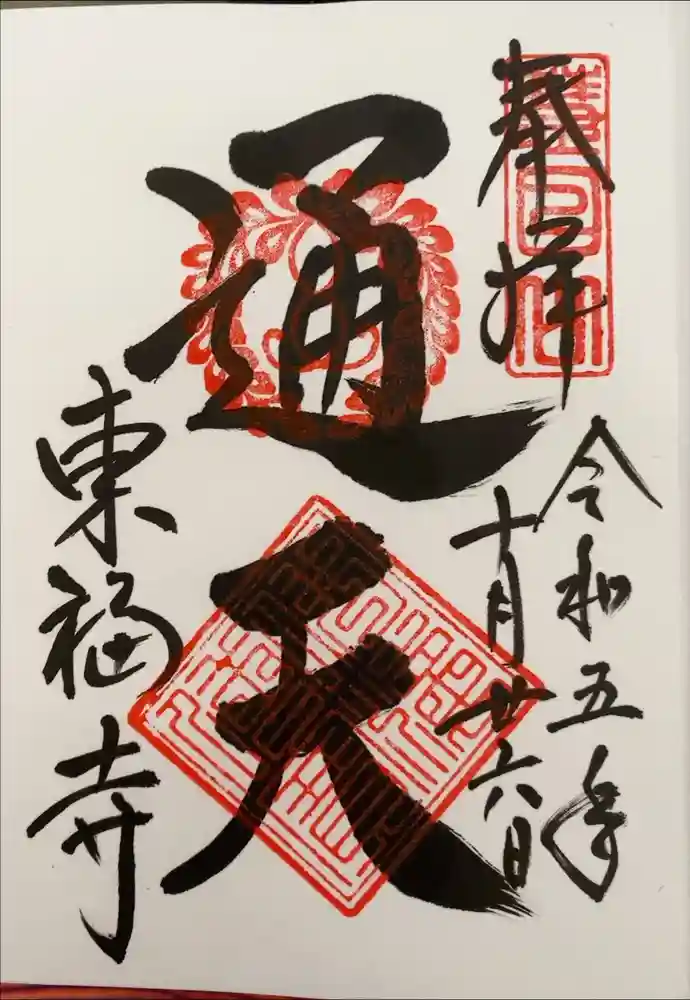 奉拝
令和五年
十月廿六日
通天
東福寺
慧日山